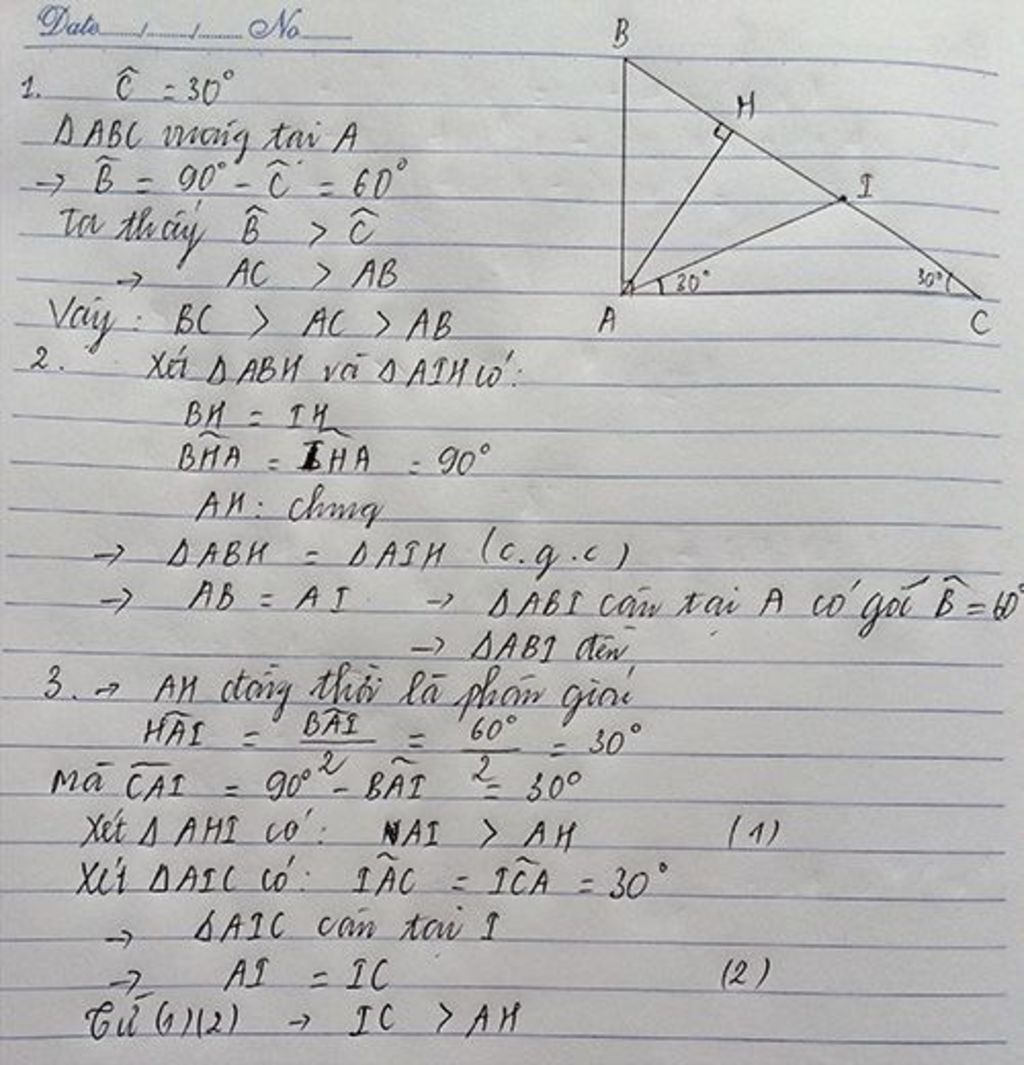 Date...../...../..... No.....
1. Ĉ = 30°
ΔABC vuông tại A
→ B̂ = 90° - Ĉ = 60°
Ta thấy B̂ > Ĉ
→ AC > AB
Vậy: BC > AC > AB
2. Xét ΔABH và ΔAIH có:
BH = IH
BĤA = IĤA = 90°
AH: chung
→ ΔABH = ΔAIH (c.g.c)
→ AB = AI → ΔABI cân tại A có góc B̂ = 60°
→ ΔABI đều
3. → AH đồng thời là phân giác
HÂI = BÂI/2 = 60°/2 = 30°
Mà CÂI = 90° - BÂI = 30°
Xét ΔAHI có: AI > AH (1)
Xét ΔAIC có: IÂC = IĈA = 30°
→ ΔAIC cân tại I
→ AI = IC (2)
Từ (1)(2) → IC > AH
B
H
I
30°
30°
A
C